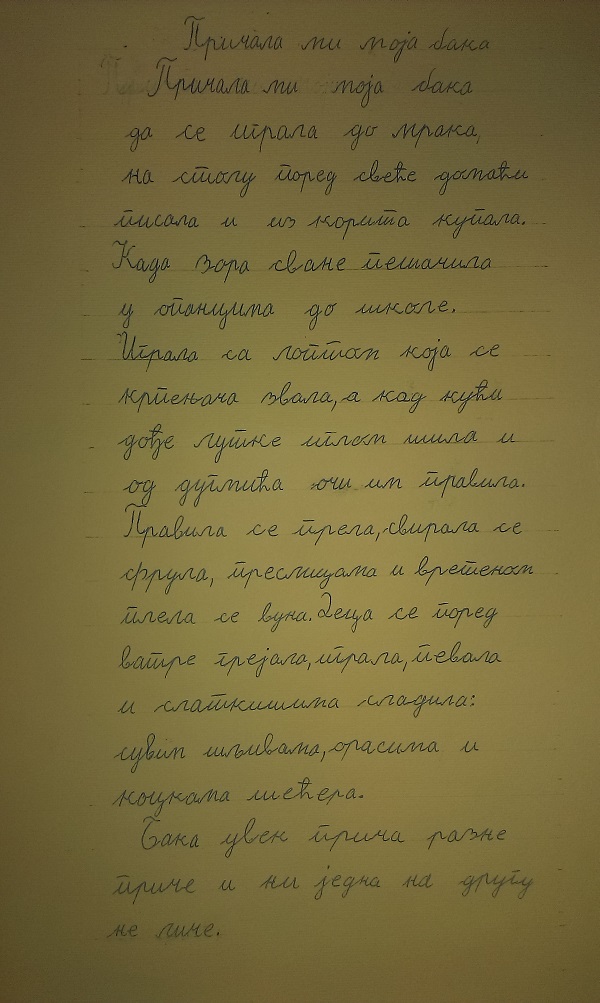 Причала ми моја бака
Причала ми моја бака
да се играла до мрака,
на столу поред свеће домаћи
писала и из корита купала.
Када зора сване пешачила
у опанцима до школе.
Играла са лоптом која се
крпењача звала, а код кући
дође лутке иглом шила и
од дугмића очи им правила.
Правила се прела, свирала се
фрула, преслицама и вретеном
плела се вуна. Деца се поред
ватре грејала, играла, певала
и слаткишима сладила:
сувим шљивама, орасима и
коцкама шећера.
Бака увек прича разне
приче и ни једна на другу
не личе.